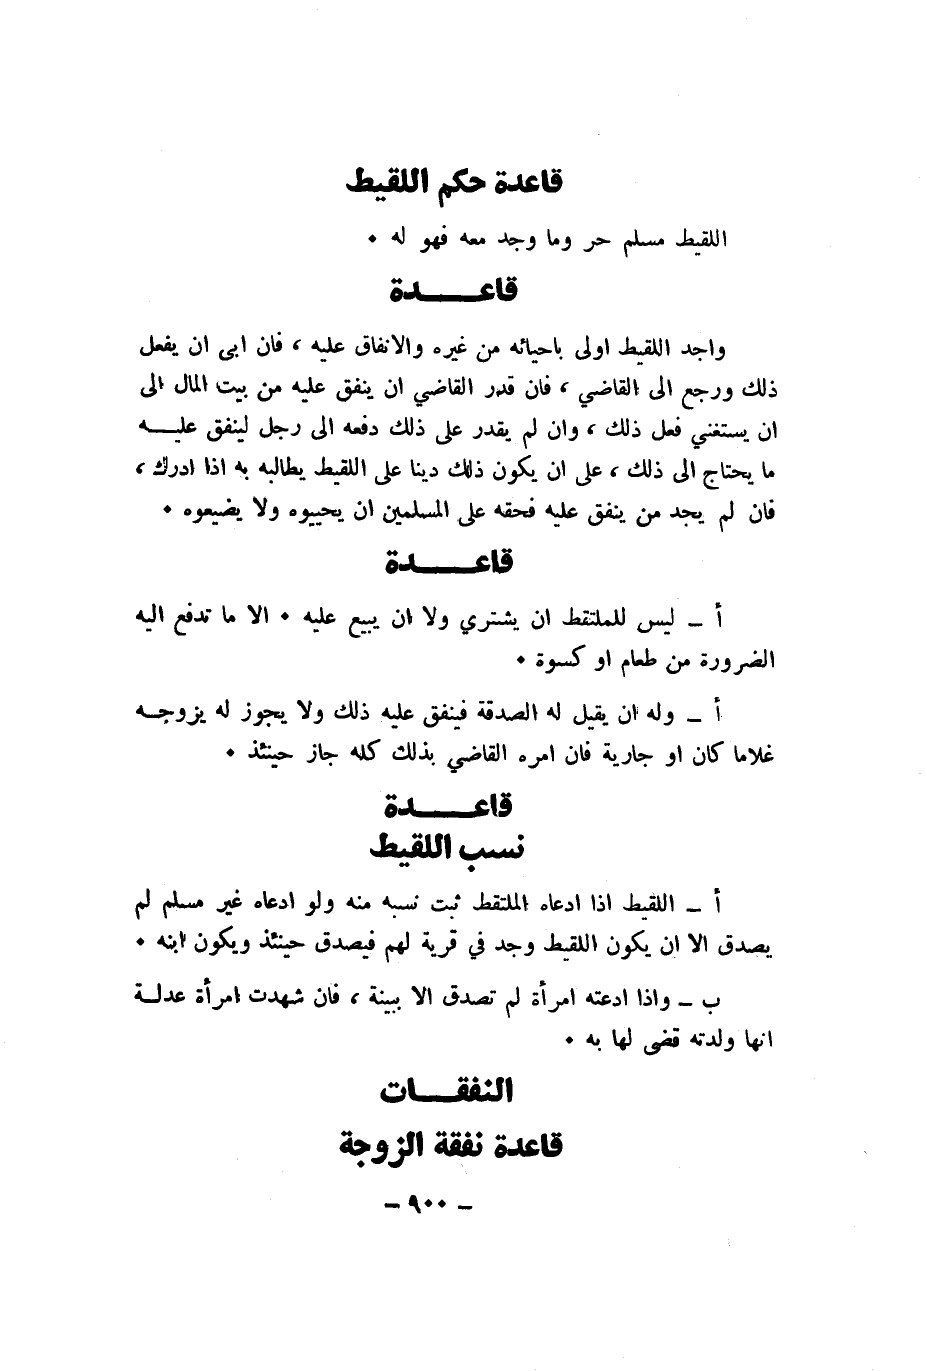 قاعدة حكم اللقيط
اللقيط مسلم حر وما وجد معه فهو له ٠
قاعـــــدة
واجد اللقيط اولى باحيائه من غيره والانفاق عليه ، فان ابى ان يفعل
ذلك ورجع الى القاضي ، فان قدر القاضي ان ينفق عليه من بيت المال الى
ان يستغني فعل ذلك ، وان لم يقدر على ذلك دفعه الى رجل لينفق عليـــه
ما يحتاج الى ذلك ، على ان يكون ذلك دينا على اللقيط يطالبه به اذا ادرك ،
فان لم يجد من ينفق عليه فحقه على المسلمين ان يحييوه ولا يضيعوه ٠
قاعـــــدة
أ ـ ليس للملتقط ان يشتري ولا ان يبيع عليه ٠ الا ما تدفع اليه
الضرورة من طعام او كسوة ٠
أ ـ وله ان يقيل له الصدقة فينفق عليه ذلك ولا يجوز له يزوجــه
غلاما كان او جارية فان امره القاضي بذلك كله جاز حينئذ ٠
قاعـــــدة
نسب اللقيط
أ ـ اللقيط اذا ادعاه الملتقط ثبت نسبه منه ولو ادعاه غير مسلم لم
يصدق الا ان يكون اللقيط وجد في قرية لهم فيصدق حينئذ ويكون ابنه ٠
ب ـ واذا ادعته امرأة لم تصدق الا ببينة ، فان شهدت امرأة عدلــة
انها ولدته قضى لها به ٠
النفقـــات
قاعدة نفقة الزوجة
ـ ٩٠٠ ـ